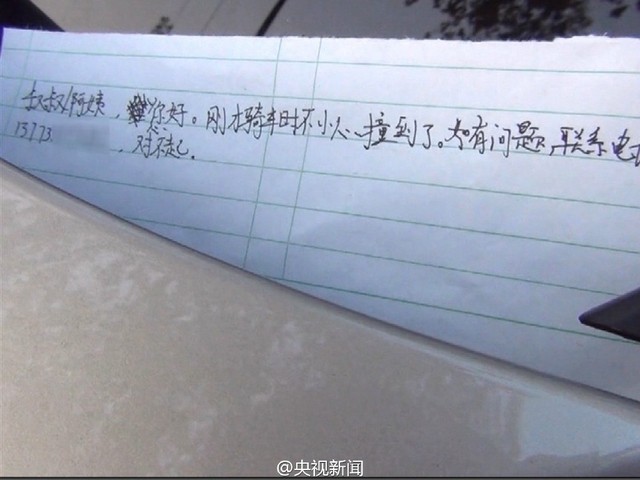 叔叔/阿姨，您好。刚才骑车时不小心撞到了。如有问题，联系电
13773
，对不起.
@央视新闻